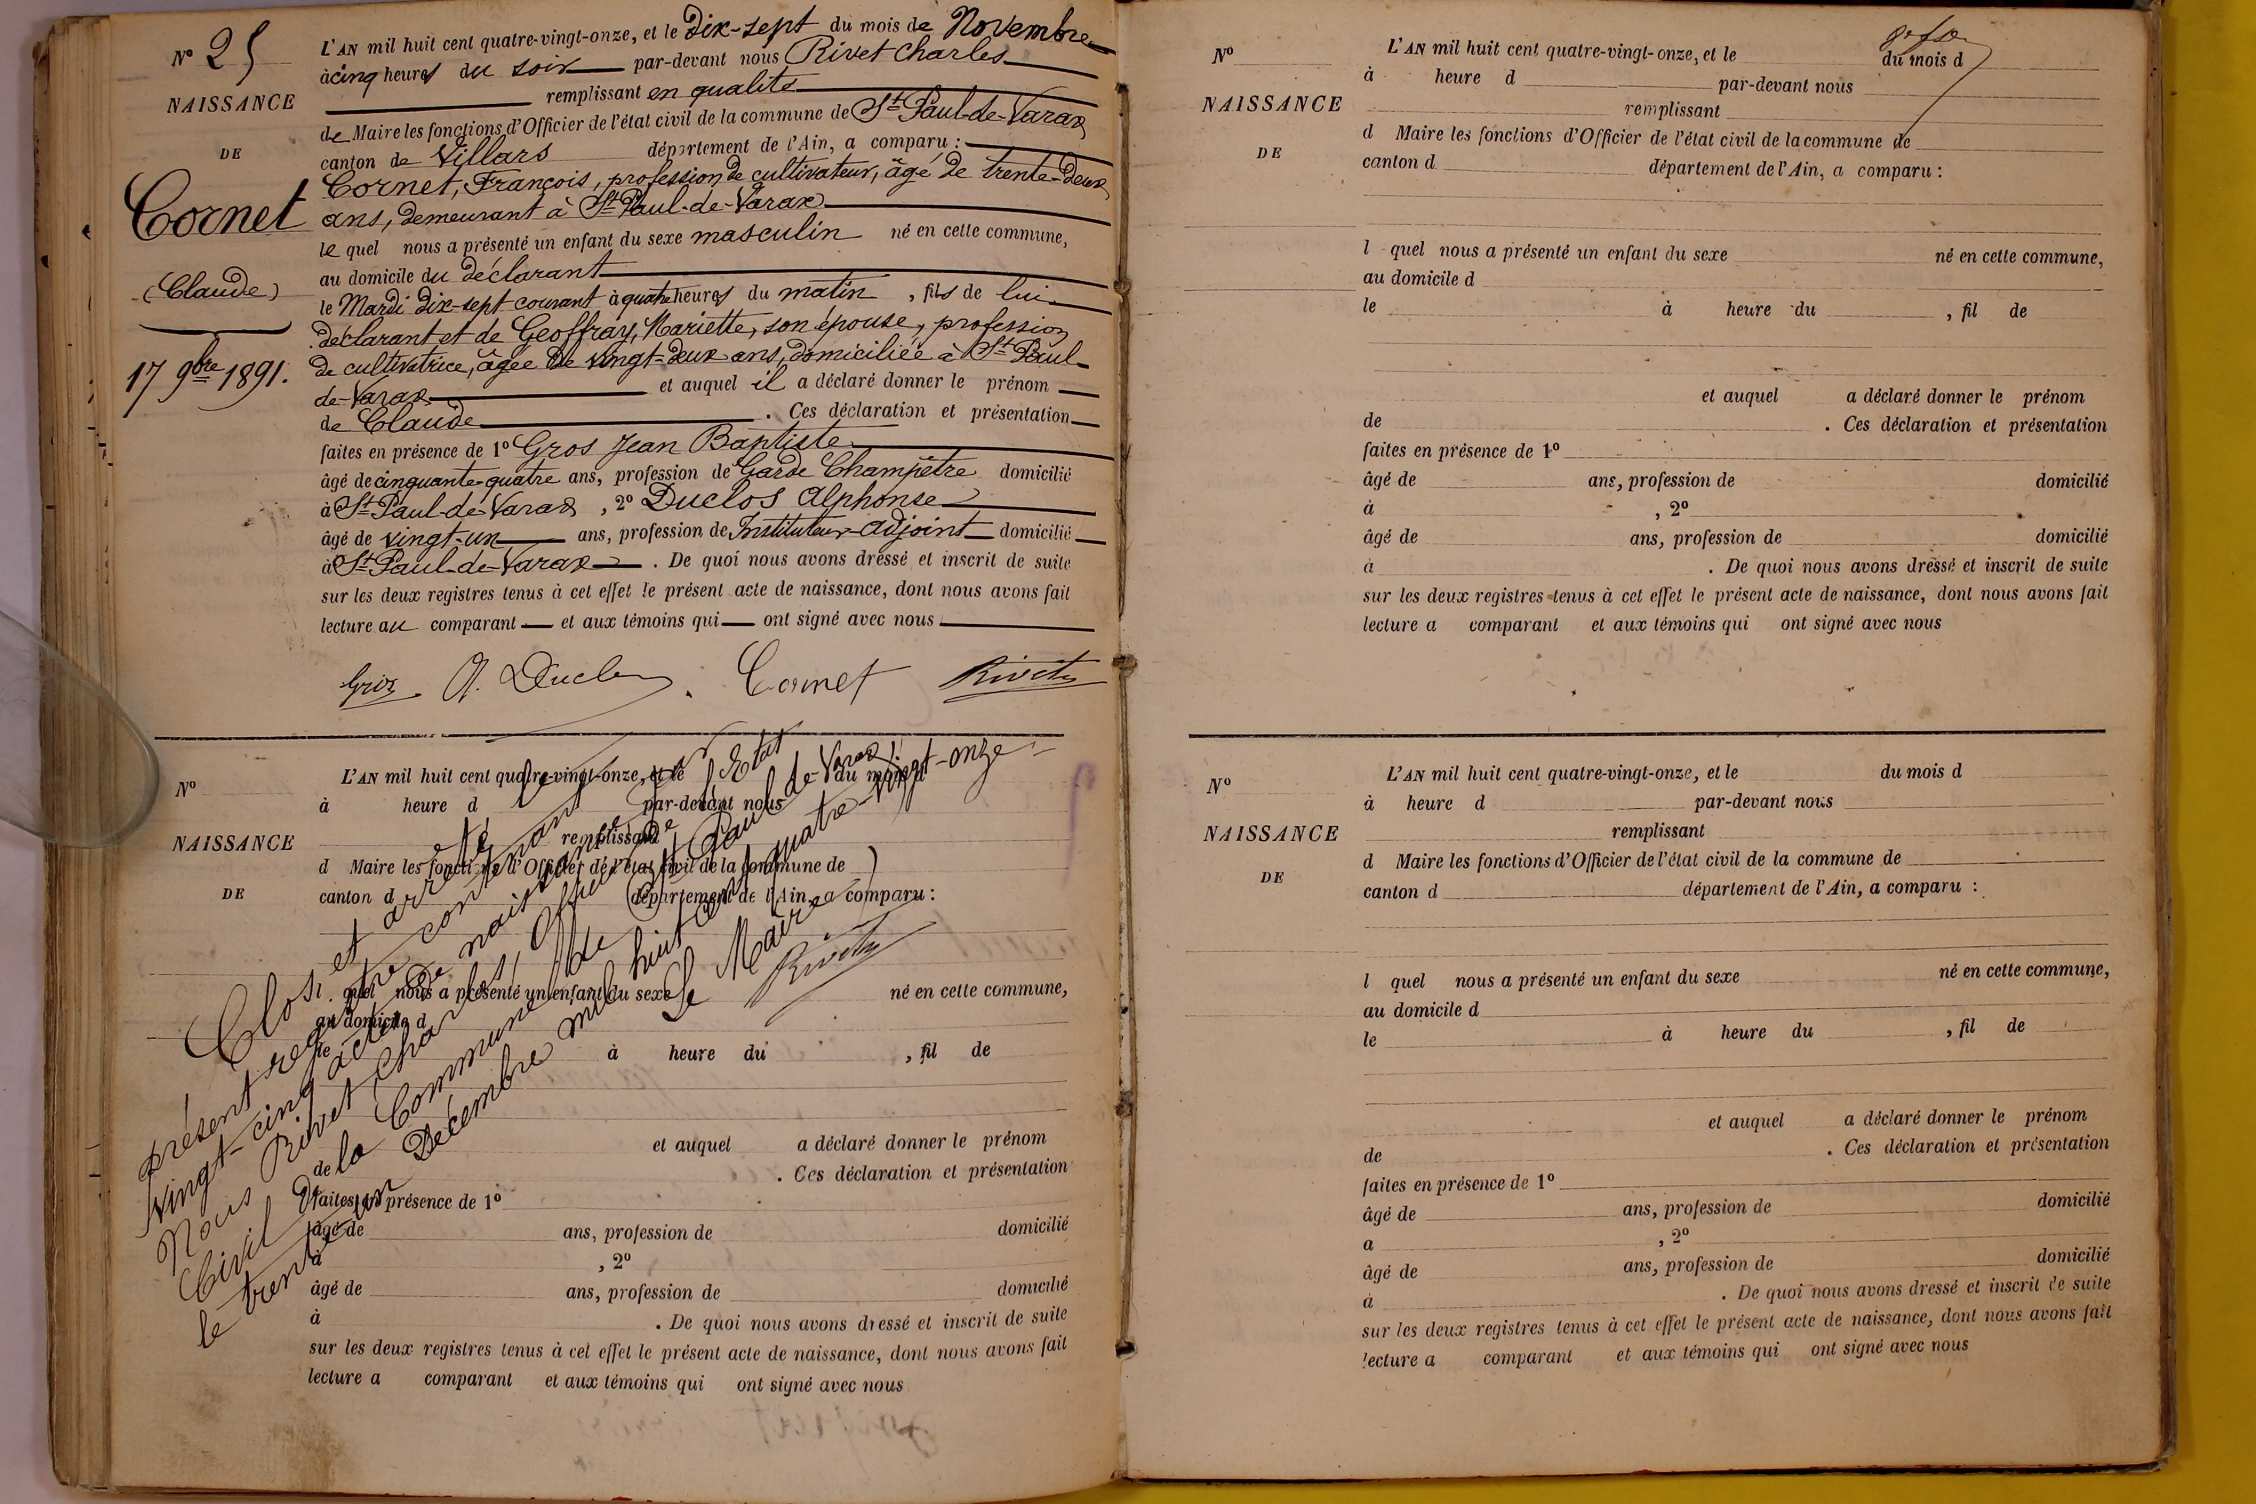 N° 25
NAISSANCE
DE
Cornet
(Claude)
17 9bre 1891.
L'AN mil huit cent quatre-vingt-onze, et le Dix-sept du mois de Novembre
à cinq heures du soir par-devant nous Rivet Charles
remplissant en qualité
de Maire les fonctions d'Officier de l'état civil de la commune de St Paul-de-Varax
canton de Villars département de l'Ain, a comparu :
Cornet, François, profession de cultivateur, âgé de trente-deux
ans, demeurant à St Paul-de-Varax
le quel nous a présenté un enfant du sexe masculin né en cette commune,
au domicile du déclarant
le Mardi dix-sept courant à quatre heures du matin , fils de lui
déclarant et de Geoffray, Mariette, son épouse, profession
de cultivatrice, âgée de vingt-deux ans, domiciliée à St Paul-
de-Varax et auquel il a déclaré donner le prénom
de Claude . Ces déclaration et présentation
faites en présence de 1° Gros Jean Baptiste
âgé de cinquante-quatre ans, profession de Garde Champêtre domicilié
à St Paul-de-Varax , 2° Duclos Alphonse
âgé de vingt-un ans, profession de Instituteur-adjoint domicilié
à St Paul-de-Varax . De quoi nous avons dressé et inscrit de suite
sur les deux registres tenus à cet effet le présent acte de naissance, dont nous avons fait
lecture au comparant et aux témoins qui ont signé avec nous
Gros A. Duclos Cornet Rivet
N°
NAISSANCE
DE
L'AN mil huit cent quatre-vingt-onze, et le du mois d
à heure d par-devant nous
remplissant
d Maire les fonctions d'Officier de l'état civil de la commune de
canton d département de l'Ain, a comparu :
l quel nous a présenté un enfant du sexe né en cette commune,
au domicile d
le à heure du , fil de
et auquel a déclaré donner le prénom
de . Ces déclaration et présentation
faites en présence de 1°
âgé de ans, profession de domicilié
à , 2°
âgé de ans, profession de domicilié
à . De quoi nous avons dressé et inscrit de suite
sur les deux registres tenus à cet effet le présent acte de naissance, dont nous avons fait
lecture a comparant et aux témoins qui ont signé avec nous
Clos et arrêté le
présent registre contenant
vingt-cinq actes de naissance par
Nous Rivet Charles, Officier de l'Etat
Civil de la Commune de St Paul-de-Varax
le trente-un Décembre mil huit cent quatre-vingt-onze
Le Maire
Rivet
N°
NAISSANCE
DE
L'AN mil huit cent quatre-vingt-onze, et le du mois d
à heure d par-devant nous
remplissant
d Maire les fonctions d'Officier de l'état civil de la commune de
canton d département de l'Ain, a comparu :
l quel nous a présenté un enfant du sexe né en cette commune,
au domicile d
le à heure du , fil de
et auquel a déclaré donner le prénom
de . Ces déclaration et présentation
faites en présence de 1°
âgé de ans, profession de domicilié
à , 2°
âgé de ans, profession de domicilié
à . De quoi nous avons dressé et inscrit de suite
sur les deux registres tenus à cet effet le présent acte de naissance, dont nous avons fait
lecture a comparant et aux témoins qui ont signé avec nous
N°
NAISSANCE
DE
L'AN mil huit cent quatre-vingt-onze, et le du mois d
à heure d par-devant nous
remplissant
d Maire les fonctions d'Officier de l'état civil de la commune de
canton d département de l'Ain, a comparu :
l quel nous a présenté un enfant du sexe né en cette commune,
au domicile d
le à heure du , fil de
et auquel a déclaré donner le prénom
de . Ces déclaration et présentation
faites en présence de 1°
âgé de ans, profession de domicilié
a , 2°
âgé de ans, profession de domicilié
à . De quoi nous avons dressé et inscrit de suite
sur les deux registres tenus à cet effet le présent acte de naissance, dont nous avons fait
lecture a comparant et aux témoins qui ont signé avec nous